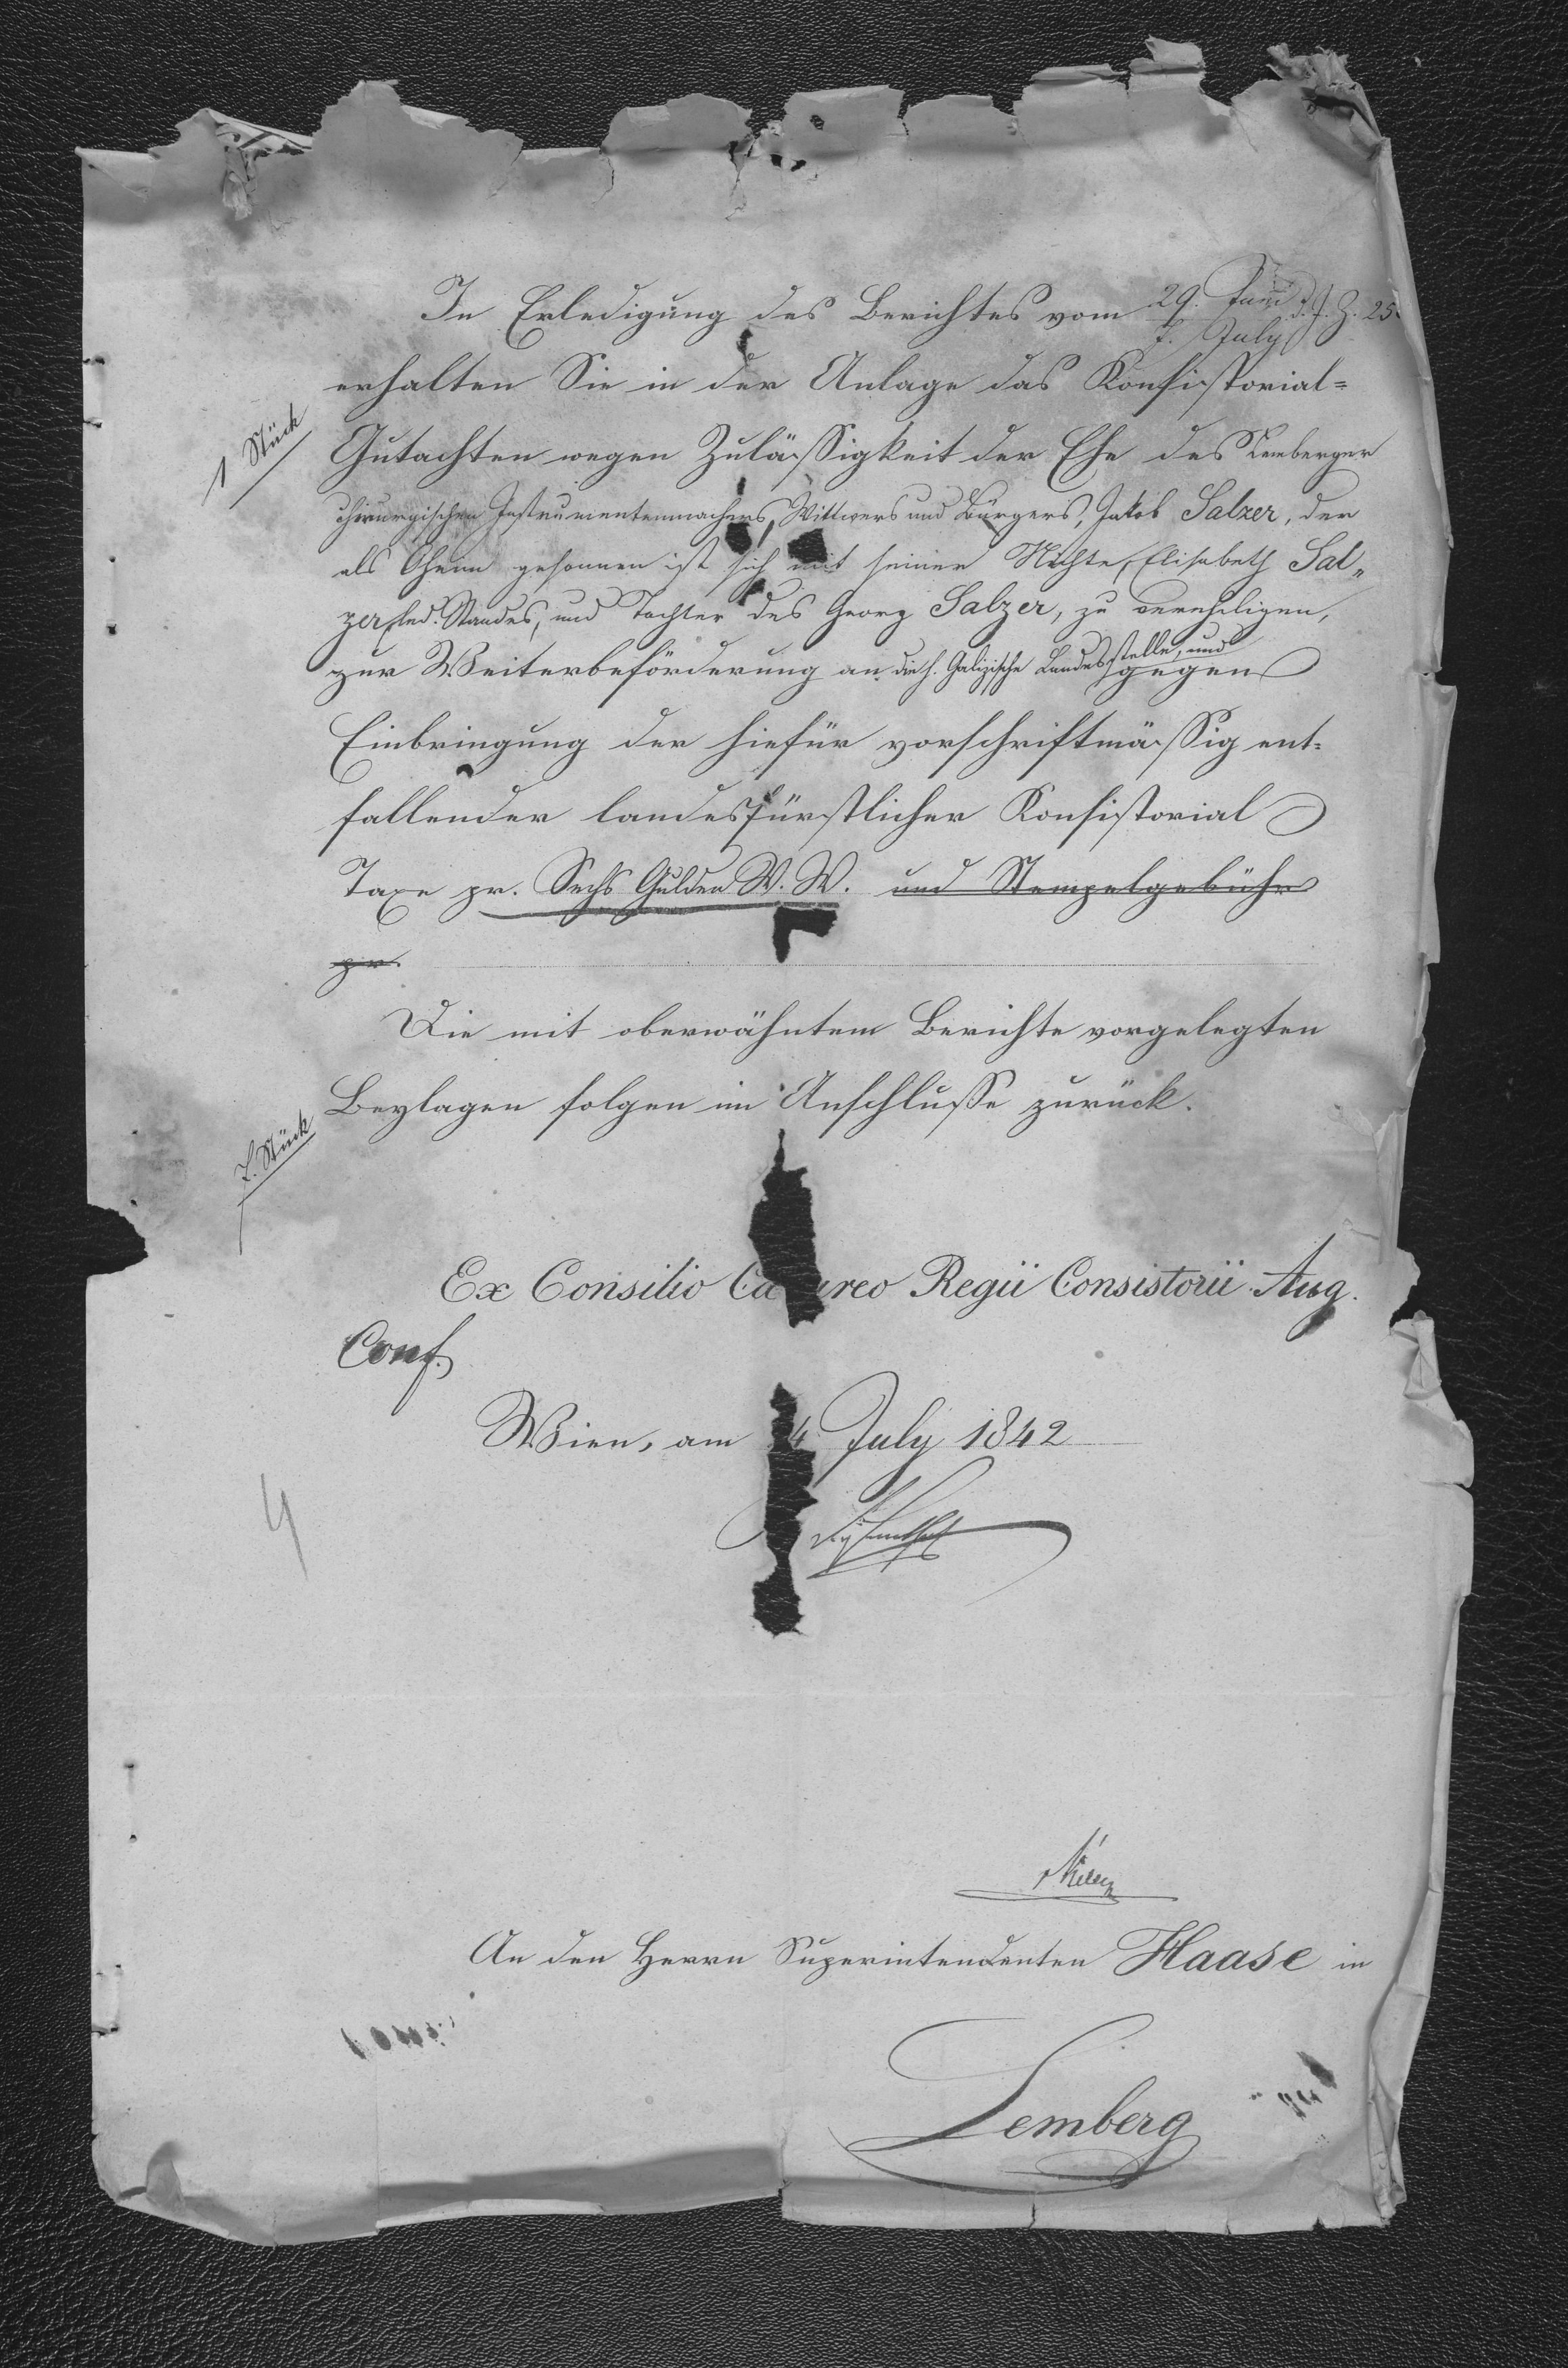 In Erledigung des Berichtes vom 29. Juni / 7. July d. J. Z. 25
erhalten Sie in der Anlage das Konsistorial=
1 Stück
Gutachten wegen Zulässigkeit der Ehe des Lemberger
chirurgischen Instrumentenmachers, Wittwers und Bürgers, Jakob Salzer, der
als Oheim gesonnen ist sich mit seiner Nichte, Elisabeth Sal„
zer, led. Standes, und Tochter des Georg Salzer, zu verehelichen,
zur Weiterbeförderung an die h. Galizische Landesstelle, und gegen
Einbringung der hiefür vorschriftmässig ent=
fallender landesfürstlicher Konsistorial
Taxe pr. Sechs Gulden W. W. und Stempelgebühr
pr.
Die mit oberwähntem Berichte vorgelegten
Beylagen folgen im Anschlusse zurück.
7. Stück
Ex Consilio Ca reo Regii Consistorii Aug.
Conf.
Wien, am 4 July 1842
An den Herrn Superintendenten Haase in
Lemberg